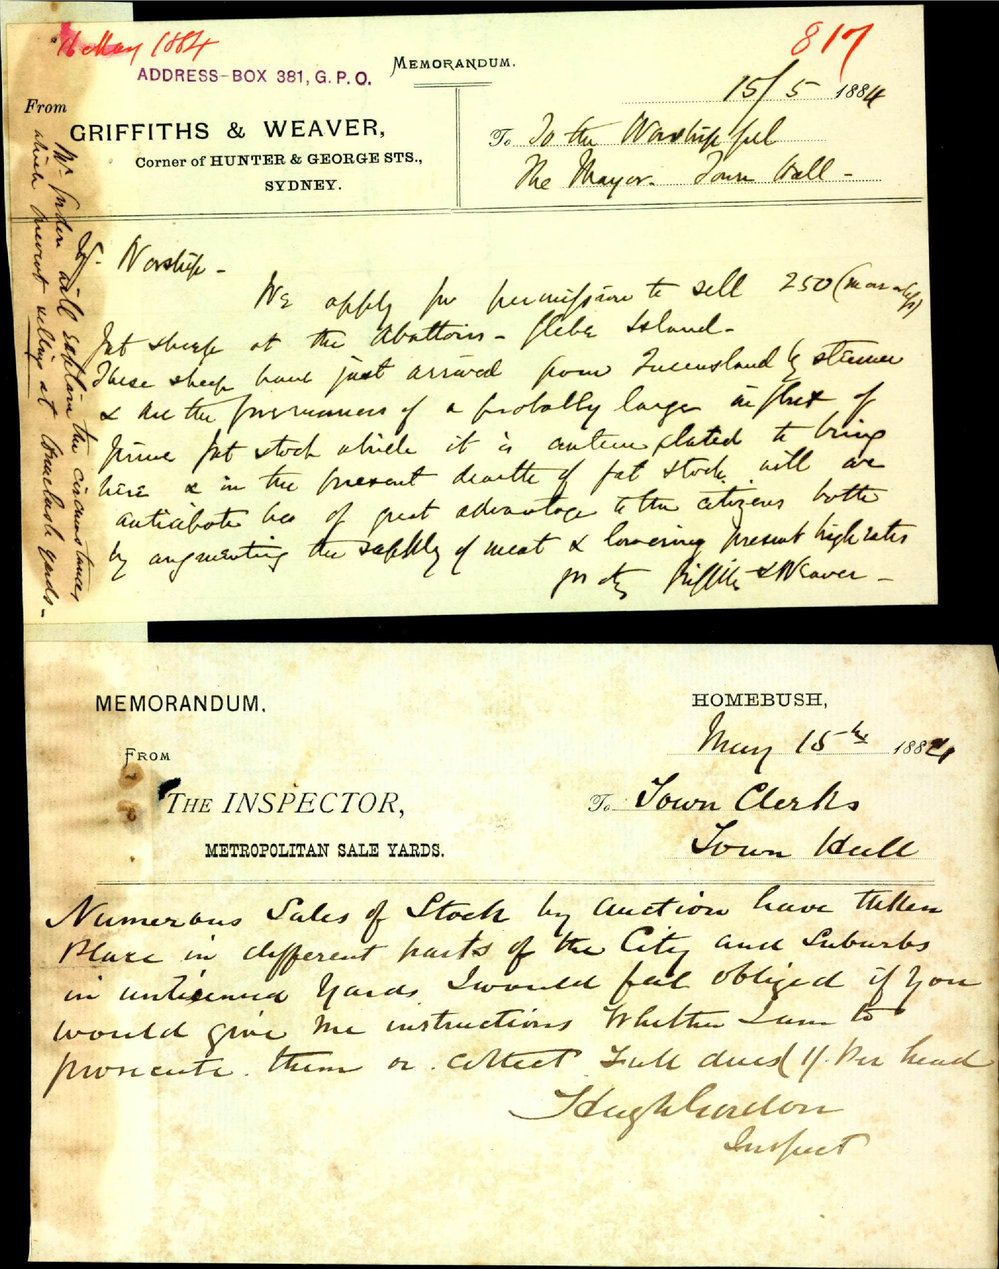 16 May 1884
817
ADDRESS-BOX 381, G. P. O.
MEMORANDUM.
15/5 1884
From
GRIFFITHS & WEAVER,
Corner of HUNTER & GEORGE STS.,
SYDNEY.
To To the Worshipful
The Mayor. Town Hall -
Yr. Worship -
We apply for permission to sell 250 (more or less)
fat sheep at the Abattoirs - Glebe Island -
These sheep have just arrived from Queensland by steamer
& are the forerunners of a probably larger influx of
prime fat stock which it is contemplated to bring
here & in the present dearth of fat stock will we
anticipate be of great advantage to the citizens both
by augmenting the supply of meat & lowering present high rates
Griffiths & Weaver -
Mr. will explain the circumstances
which prevent selling at yards -
MEMORANDUM.
HOMEBUSH,
May 15th 1884
FROM
THE INSPECTOR,
METROPOLITAN SALE YARDS.
To Town Clerks
Town Hall
Numerous Sales of Stock by auction have taken
Place in different parts of the City and Suburbs
in unlicensed Yards I would feel obliged if you
would give me instructions Whether I am to
prosecute them or collect Full dues 1/. Per head
Hugh Gordon
Inspect